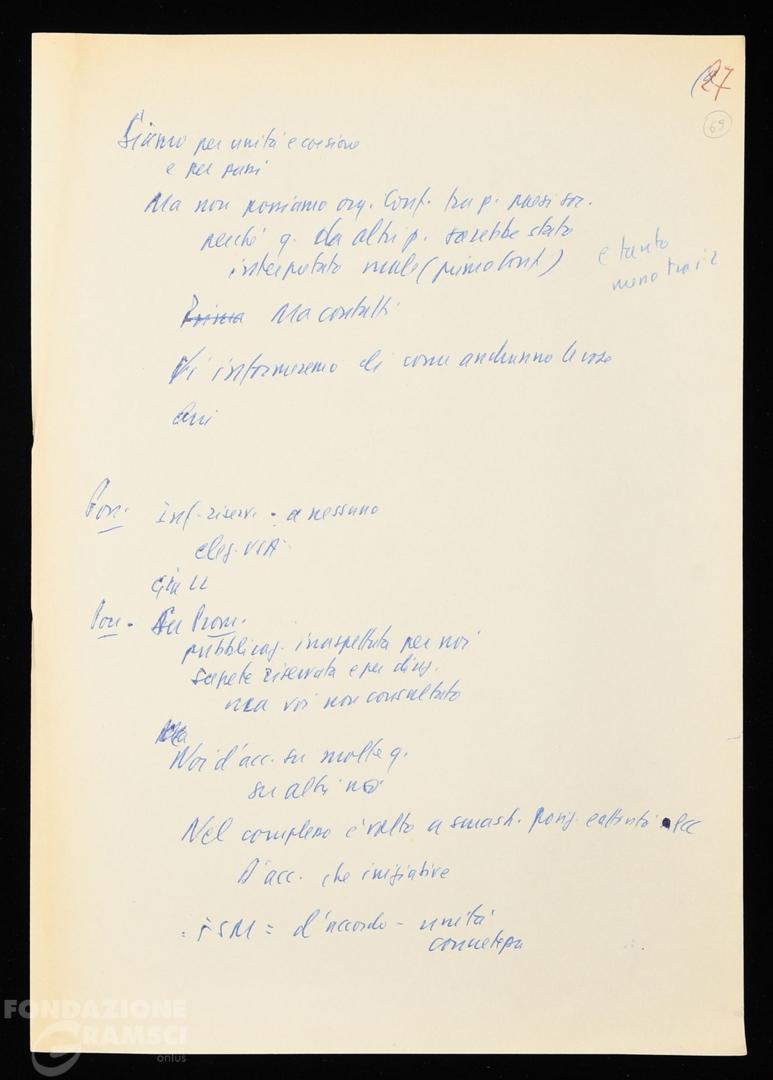 27
69
Siamo per unità e coesione
e per
Ma non possiamo org. Conf. tra p. paesi soc.
perché q. da altri p. sarebbe stato
interpretato male (primo Conf)
e tanto
meno tra i 2
Prima Ma contatti
Vi informeremo di come andranno le cose
Pon.
Inf. riserv. - a nessuno
eleg. USA
Già LL
Pon. - Su Prom.
pubblicaz. inaspettata per noi
Sapete riservata e per dirig.
ma voi non consultato
Ma
Noi d'acc. su molte q.
su altri no
Nel complesso è volto a smash. posiz. e attività PCC
D'acc. che iniziative
FSM = d'accordo - unità
concreta
FONDAZIONE
GRAMSCI
onlus